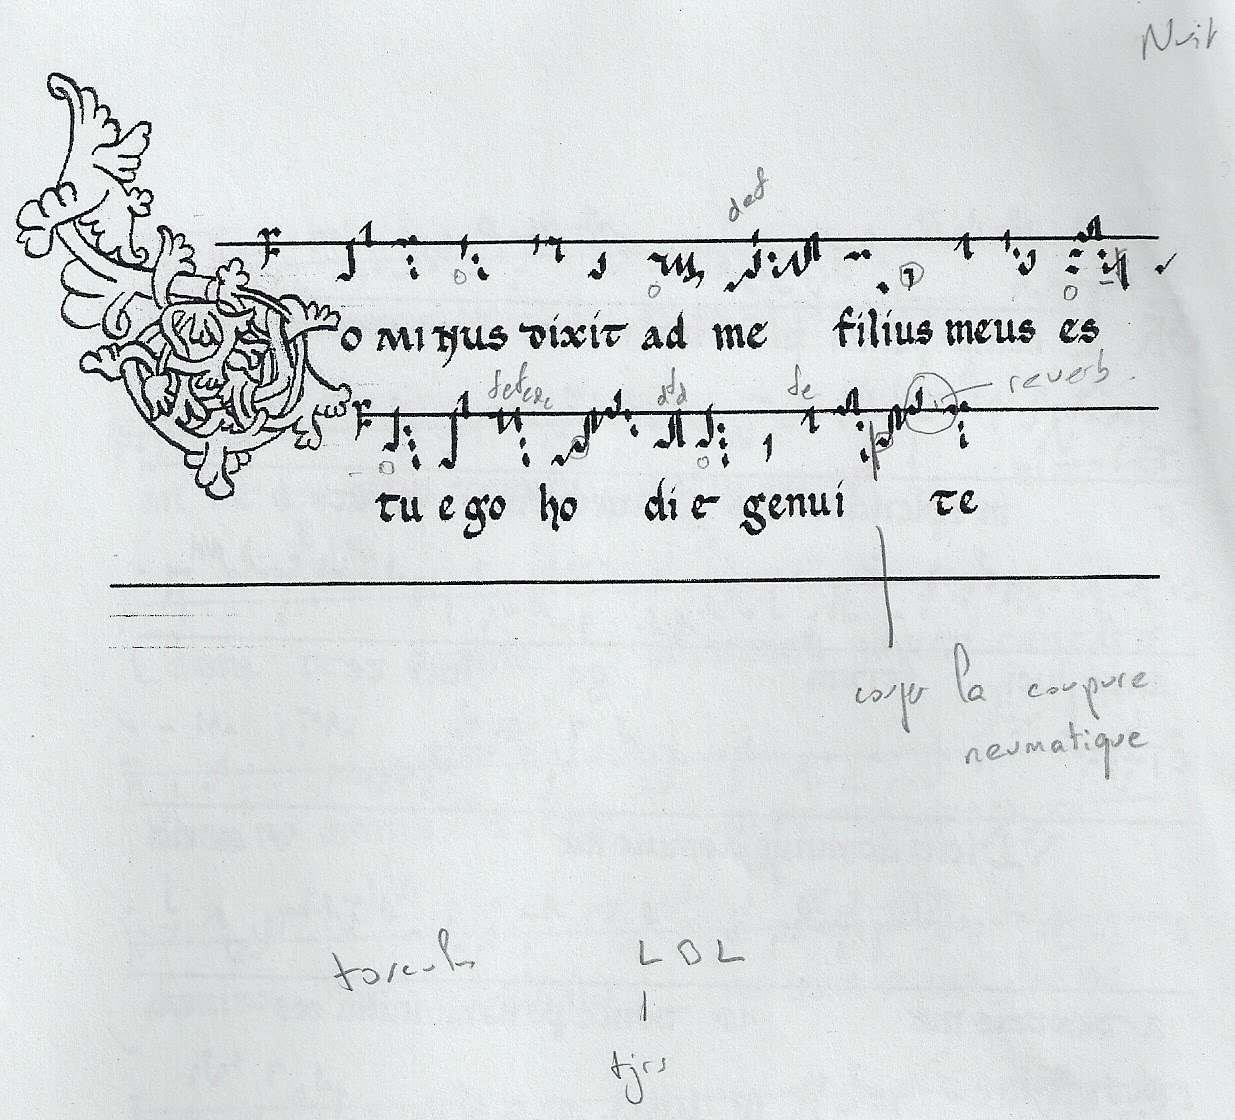 Nuit
def
F
O MINUS DIXIT AD ME FILIUS MEUS ES
reverb.
dfd
F
TU EGO HO DI E GENUI TE
la coupure
neumatique
torculus L B L
tjrs